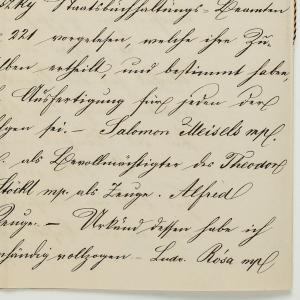 szky Staatsbuchhaltungs-Beamten
221 vorgelesen, welche ihre Zu-
lben ertheilt, und bestimmt haben,
Ausfertigung für jeden der
lgen sei. — Salomon Meisels mp.
als Bevollmächtigter des Theodor
Stöckl mp. als Zeuge. Alfred
Zeuge. — Urkund dessen habe ich
nhändig vollzogen — Ludw. Rósa mp